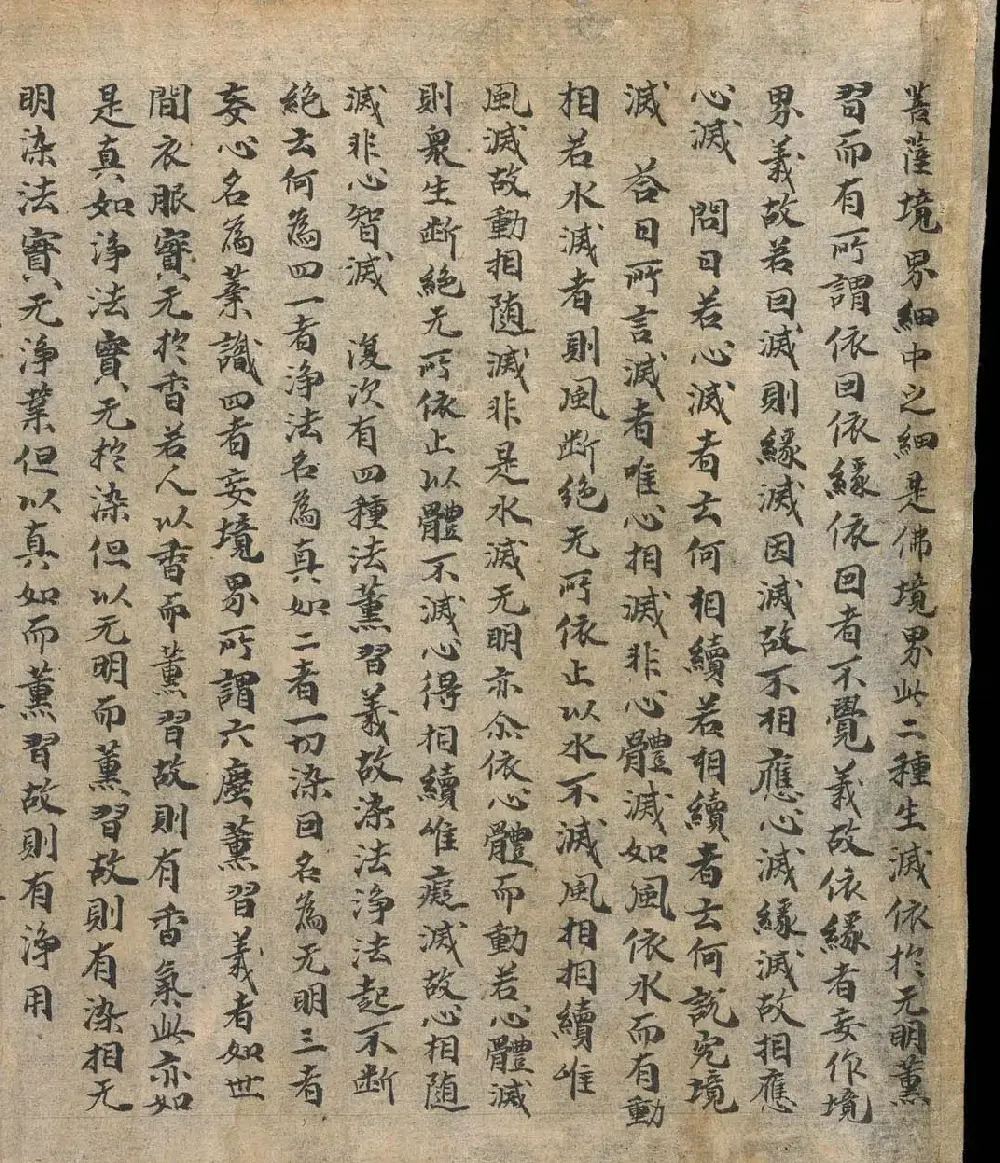 菩薩境界細中之細是佛境界此二種生滅依扵无明薫
習而有所謂依囙依緣依囙者不覺義故依緣者妄作境
界義故若囙滅則緣滅因滅故不相應心滅緣滅故相應
心滅　問曰若心滅者云何相續若相續者云何說究境
滅　荅曰所言滅者唯心相滅非心體滅如風依水而有動
相若水滅者則風断絕无所依止以水不滅風相相續唯
風滅故動相随滅非是水滅无明亦尒依心體而動若心體滅
則衆生断絕无所依止以體不滅心得相續唯癡滅故心相随
滅非心智滅　復次有四種法薫習義故染法浄法起不断
絕云何為四一者浄法名為真如二者一切染囙名為无明三者
妄心名為業識四者妄境界所謂六塵薫習義者如世
間衣服實无扵香若人以香而薫習故則有香氣此亦如
是真如浄法實无扵染但以无明而薫習故則有染相无
明染法實无浄業但以真如而薫習故則有浄用